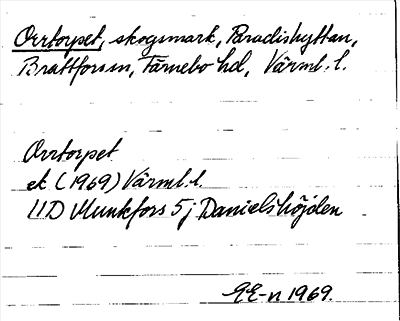 Orrtorpet, skogsmark, Paradishyttan,
Brattforsen, Färnebo hd, Värml. l.
Orrtorpet
ek (1969) Värml. l.
11D Munkfors 5j Danielshöjden
1969.